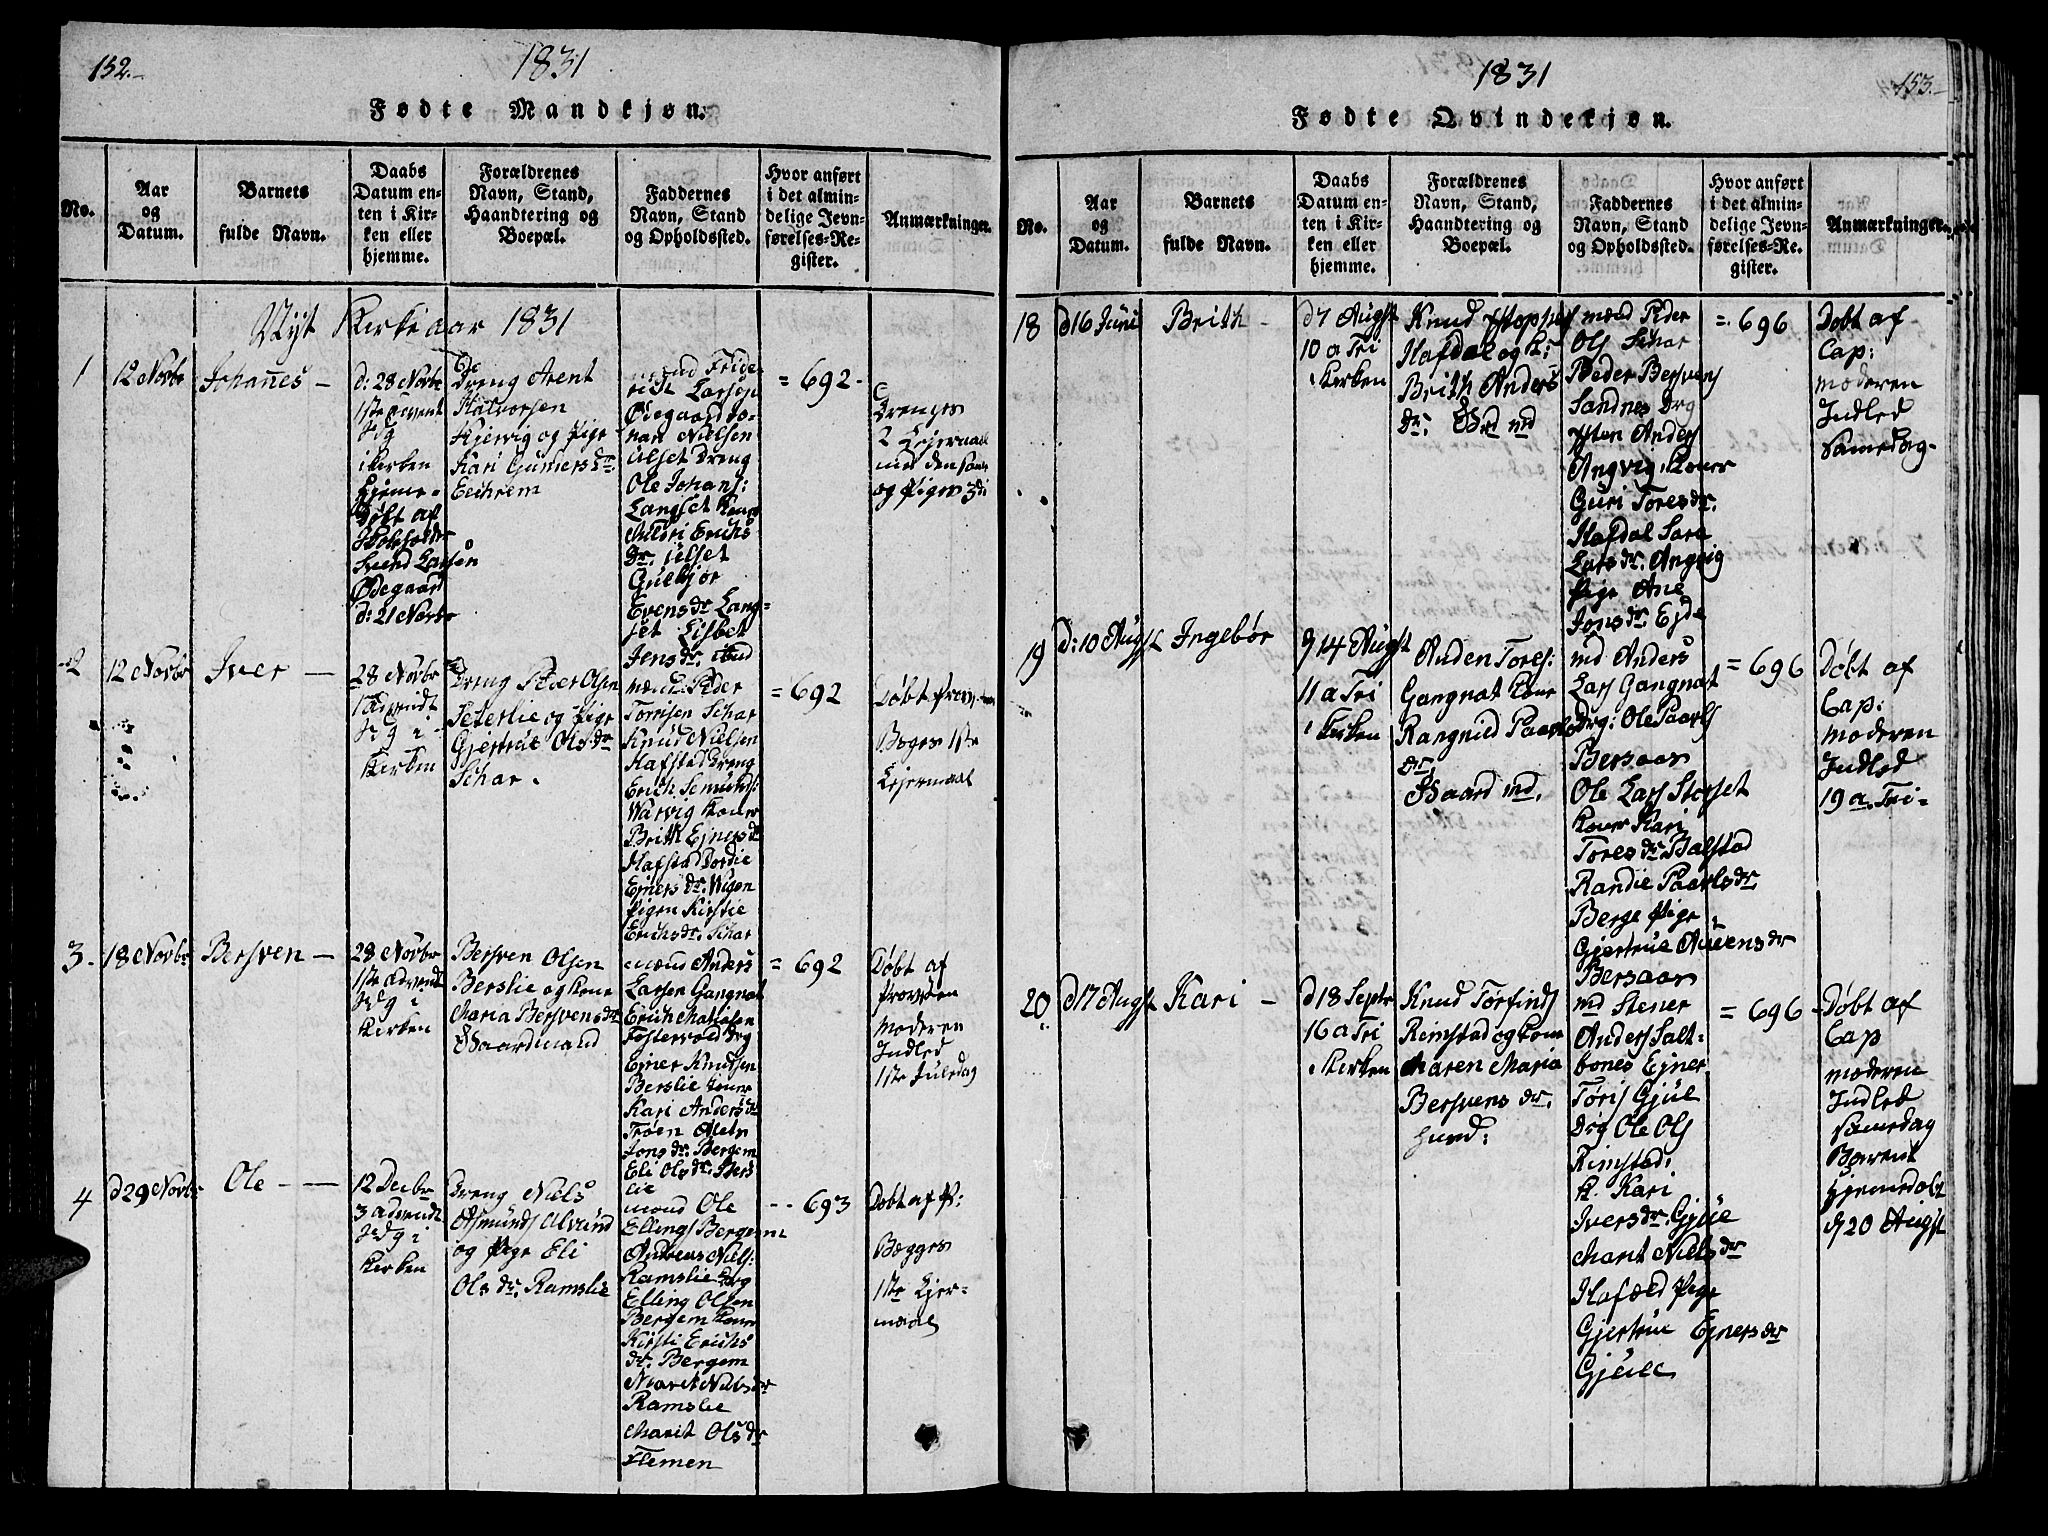 152.
1831
Fødte Mandkjøn.
No.
Aar
og
Datum.
Barnets
fulde Navn.
Daabs
Datum en-
ten i Kir-
ken eller
hjemme.
Forældrenes
Navn, Stand,
Haandtering og
Boepæl.
Faddernes
Navn, Stand
og Opholdssted.
Hvor anført
i det almin-
delige Jevn-
førelses-Re-
gister.
Anmærkninger.
Nÿt Kirkeaar 1831
1
12 Novbr
Johañes -
d: 28 Novbr
1ste advent
i Kirken
Hjeme-
Døbt af
Svend Larsen
Ødegaard
d: 21 Novbr
Dreng Arent
Halvorsen
Kjervig og Pige
Kari Guñersdr
Eeikrem
Larsen
Ødegaard
Nielsen
Ulset Dreng
Ole Johans:
Langset Koner
Mildri Erichs
Dr. Ulset
Guebjør
Evensdr Lang-
set Lisbet
Jensdr.
= 692 -
Drenges
2 Lejermaal
med den samme
og Piges 3di
2
12 Novbr
Iver -
28 Novbr
1 Advendt
i
Kirken
Dreng Peder Olsen
Peterlie og Pige
Gjertrue Olsdr
Schar.
mænd Peder
Tomsen Schar
Knud Nielsen
Hafstad Dreng
Erich
Warvig Koner
Brith Ejnersdr
Hafstad Dordie
Ejnersdr. Wigen
Pigen Kirstie
Erichsdr. Schar
= 692
Døbt Provsten
Begges 1ste
Lejermaal
3.
18 Novbr
Bersven -
28 Novbr
1ste advendt
i
Kirken
Bersven Olsen
Berslie og Kone
Maria Bersvensdr
Gaardmand
mænd Anders
Larsen Gangnat
Erich
Fostervold Drg
Ejner Knudsen
Berslie Koner
Kari Andersdr
Trøen
Jonsdr. Bergem
Eli Olsdr. Bers
lie
= 692
Døbt af
Provsten
Moderen
Indled
1ste Juledag
4
d 29 Novbr
Ole - -
12 Decbr
3 advendt
i
Kirken
Dreng Niels
Asmunds Alvund
og Pige Eli
Olsdr. Ramslie
mænd Ole
Ellings Bergem
Andreas Niels:
Ramslie Drg
Elling Olsen
Bergem Koner
Kirsti Erichs
dr. Bergem
Marit Nielsdr
Ramslie
Marit Olsdr
Flemen
- - 693
Døbt af P:
Bægges
1ste Lejer-
maal
1831
153.
Fødte Qvindekjøn.
No.
Aar
og
Datum.
Barnets
fulde Navn.
Daabs
Datum en-
ten i Kir-
ken eller
hjemme.
Forældrenes
Navn, Stand,
Haandtering og
Boepæl.
Faddernes
Navn, Stand
og Opholdssted.
Hvor anført
i det almin-
delige Jevn-
førelses-Re-
gister.
Anmærkninger.
18
d 16 Juni
Brith -
d 7 Augst
10 a Tri
i Kirken
Knud
Hafdal og K:
Brith Anders
dr. Grd md
mænd Peder
Ols Schar
Peder Bersvens
Sandnes Drg
Anders
Angvig Koner
Guri Toresdr.
Hafdal Sara
Larsdr. Angvig
Pige Ane
Jonsdr. Ejde
= 696
Døbt af
Cap:
Moderen
Indled
Samedag -
19
d: 10 Augst
Ingebør
d 14 Augst
11 a Tri
i Kirken
Auden Tores:
Gangnat Kone
Rangnild Paarls
dr.
Gaard md.
md Anders
Lars Gangnat
Drg: Ole Paarls
Bersaas
Ole Lars Storset
Koner Kari
Toresdr. Balstad
Randie Paarlsdr.
Berge Pige
Gjertrue Audensdr
Bersaas
= 696
Døbt af
Cap:
Moderen
Indled
19 a. Tri-
20
d 17 Augst
Kari -
d 18 Septr
16 a Tri
i Kirken
Knud Torfinds
Rimstad og Kone
Maren Maria
Bersvensdr.
huusd:
md Stener
Anders Salt-
bones Ejner
Toris Gjul
Drg Ole Ols
Rimstad:
K. Kari
Iversdr. Gjul
Marit Nielsdr
Hafæld Pige
Gjertrue Ejnersdr
Gjeule
= 696 -
Døbt af
Cap
Moderen
Indled
samedag
Barnet
hjemedøbt
d 20 Augst